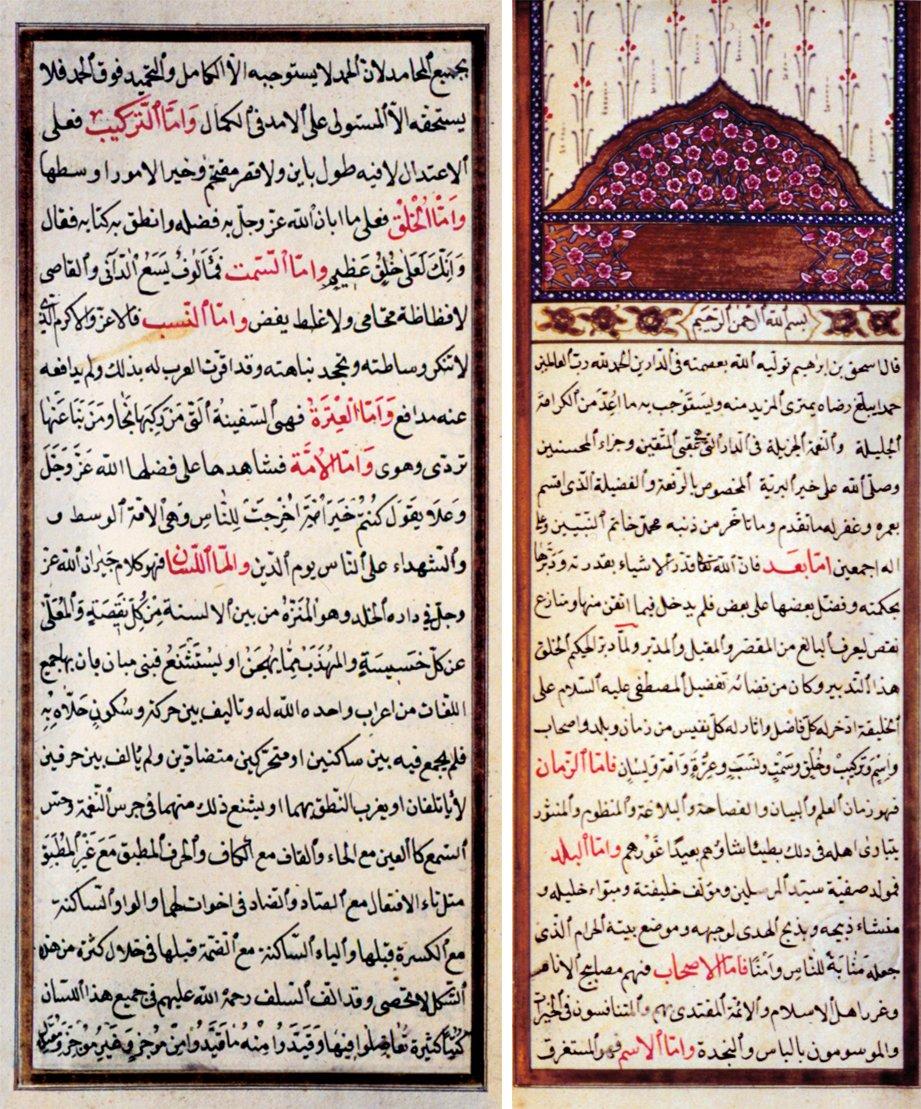 بسم الله الرحمن الرحيم
قال اسحق بن ابراهيم تولیه الله بعصمته فى الدارين الحمد لله رب العالمين
حمدا يبلغ رضاه يمترى المزيد منه ويستوجب به ما اعد من الكرامة
الجليلة والنعمة الجزيلة فى الدار التى هى عقبى المتقين وجزاء المحسنين
وصلى الله على خير البرية المخصوص بالرفعة والفضيلة الذى اقسم
بعمره وغفر له ما تقدم وما تأخر من ذنبه محمد خاتم النبيين وعلى
اله اجمعين اما بعد فان الله قدر الاشياء بقدرته ودبرها
بحكمته وفضل بعضها على بعض فلم يدخل فيما اتقن منها وصنع
نقص ليعرف البالغ من المقصر والمقبل والمدبر ولما دبر الحكيم الخلق
هذا التدبير وكان من قضائه تفضيل المصطفى عليه السلام على
الخليقة ادخر له كل فاضل واثار له كل نفيس من زمان وبلد واصحاب
واسم وتركيب وخلق وسمت ونسب وعترة وامة ولسان فاما الزمان
فهو زمان العلم والبيان والفصاحة والبلاغة والمنظوم والمنثور
يتبارى اهله فى ذلك بطيئا شاؤهم بعيدا غورهم واما البلد
فمولد صفيه سيد المرسلين ومؤلف خليفته ومبتواء خليله و
منشاء ذبيحه وبذبح الهدى لوجهه وموضع بيته الحرام الذى
جعله مثابة للناس وامنا فاما الاصحاب فهم مصابيح الانام
وغرر اهل الاسلام والائمة المقتدى بهم والمتنافسون فى الخيرات
والموسومون بالباس والنجدة واما الاسم فهو المستغرق
بجميع المحامد لان الحمد لا يستوجبه الا الكامل والتحميد فوق الحمد فلا
يستحقه الا المستولى على الامد فى الكمال واما التركيب فعلى
الاعتدال لا فيه طول باين ولا قصر مقتحم وخير الامور اوسطها
واما الخلق فعلى ما ابان الله عز وجل به فضله وانطق به كتابه فقال
وانك لعلى خلق عظيم واما السمت فمألوف يسع الدانى والقاصى
لا فظاظة تتحامى ولا غلظ يفض واما النسب فالاعز والاكرم الذى
لا تنكر وساطته وتجحد نباهته وقد اقرت العرب له بذلك ولم يدافعه
عنه مدافع واما العترة فهى السفينة التى من ركبها نجا ومن نبا عنها
تردى وهوى واما الامة فشاهدها على فضلها الله عز وجل
وعلا يقول كنتم خير امة اخرجت للناس وهى الامة الوسط و
والشهداء على الناس يوم الدين واما اللسان فهو كلام جيران الله عز
وجل فى دار الخلد وهو المنزه من بين الالسنة من كل نقيصة والمعلى
عن كل خسيسة والمهذب مما يستهجن او يستشنع فبنى مبان بان بها جميع
اللغات من اعراب واحده الله له وتاليف بين حركة وسكون حلاه به
فلم يجمع فيه بين ساكنين او متحركين متضادين ولم يالف بين حرفين
لا يأتلفان او يعرب النطق بهما او يشنع ذلك منهما فى جرس النغمة وحس
السمع كالعين مع الحاء والقاف مع الكاف والحرف المطبق مع غير المطبق
مثل تاء الافتعال مع الصاد والضاد فى اخوات لهما والواو الساكنة
مع الكسرة قبلها والياء الساكنة مع الضمة قبلها فى خلال كثرة من هذه
الشكل لا تحصى وقد الف السلف رحمة الله عليهم فى جميع هذا اللسان
كتبا كثيرة تفاضلوا فيها وقيدوا منه ما قيدوا من موجز وغير موجز